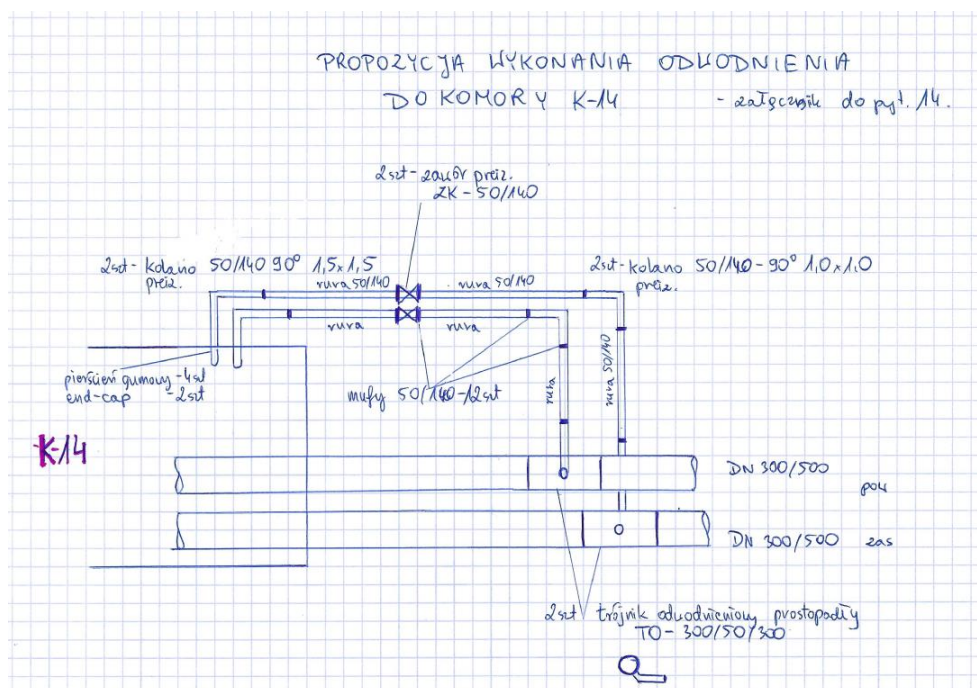 PROPOZYCJA WYKONANIA ODWODNIENIA
DO KOMORY K-14 - załącznik do pyt. 14.
2szt - zawór preiz.
ZK - 50/140
2szt - kolano 50/140 90° 1,5x1,5
preiz.
2szt - kolano 50/140 - 90° 1,0x1,0
preiz.
rura 50/140
rura 50/140
rura
rura
pierścień gumowy - 4szt
end-cap - 2szt
mufy 50/140 - 12szt
rura
rura 50/140
K-14
DN 300/500
pow
DN 300/500 zas
2szt trójnik odwodnieniowy prostopadły
TO - 300/50/300